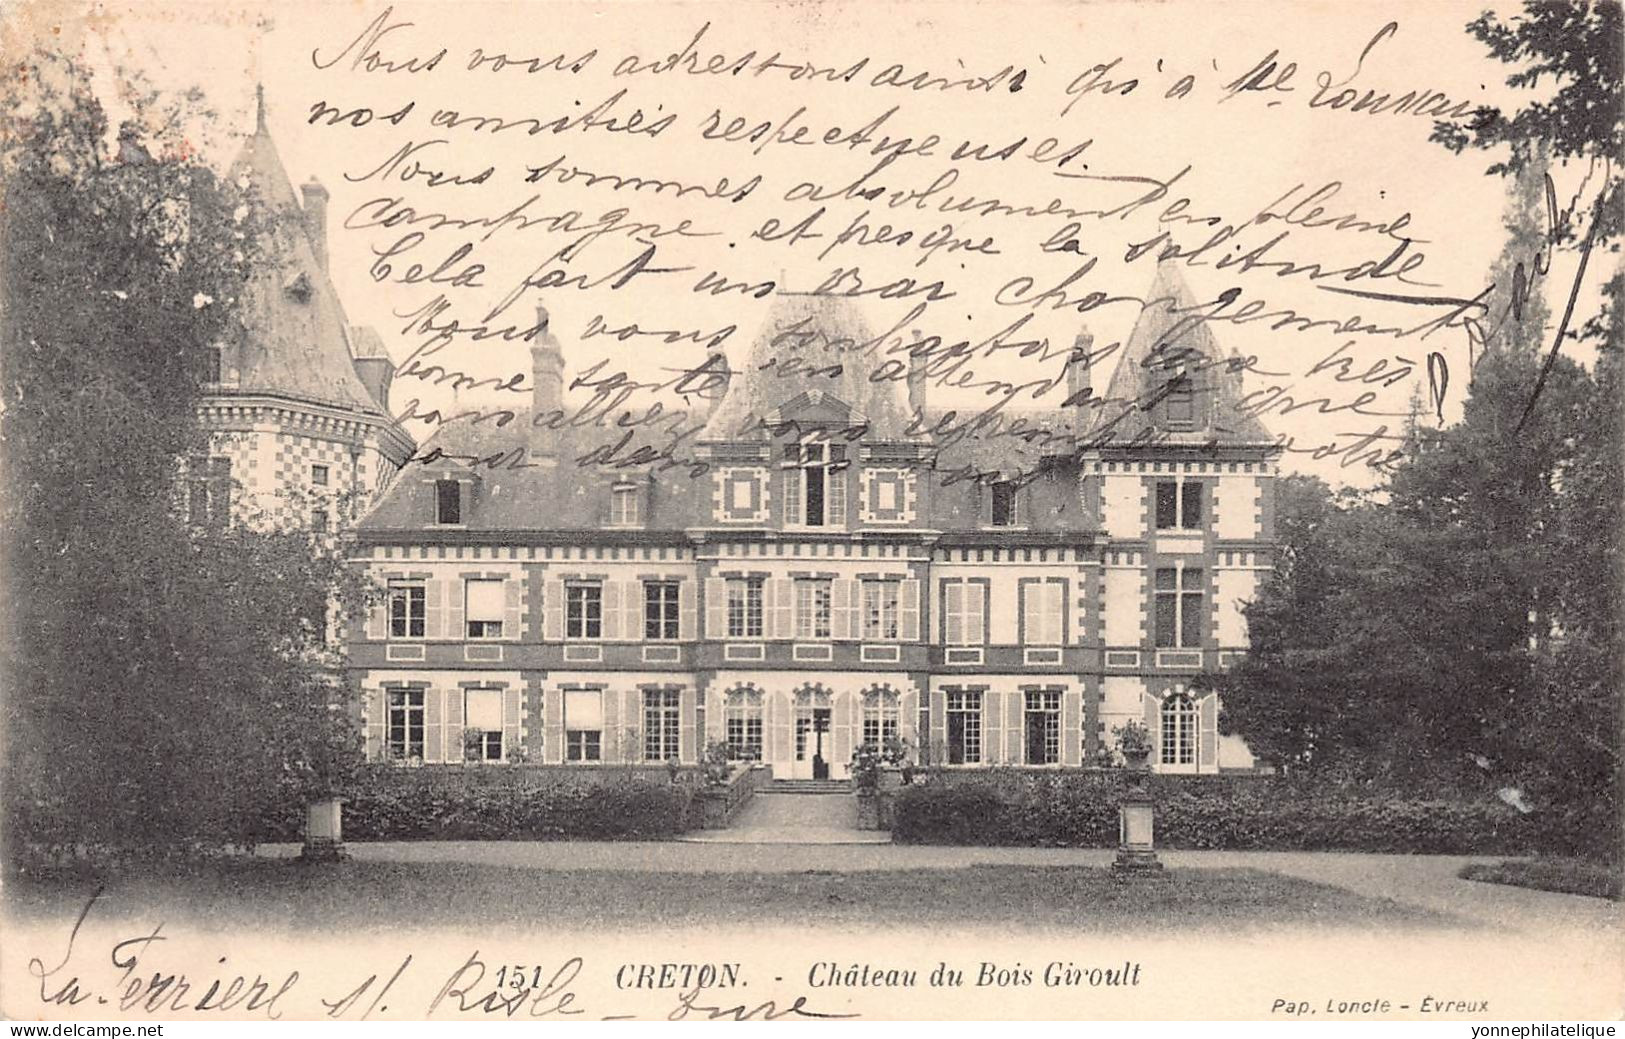 Nous vous adressons ainsi qu'à Me Louvain
nos amitiés respectueuses.
Nous sommes absolument en pleine
campagne et presque la solitude
Cela fait un vrai changement
Nous vous souhaitons une très
bonne santé en attendant que
vous alliez vous reposer à votre
tour dans
La Ferriere s/ Risle - Eure
151 CRETON. - Château du Bois Giroult
Pap. Loncle - Évreux
yonnephilatelique